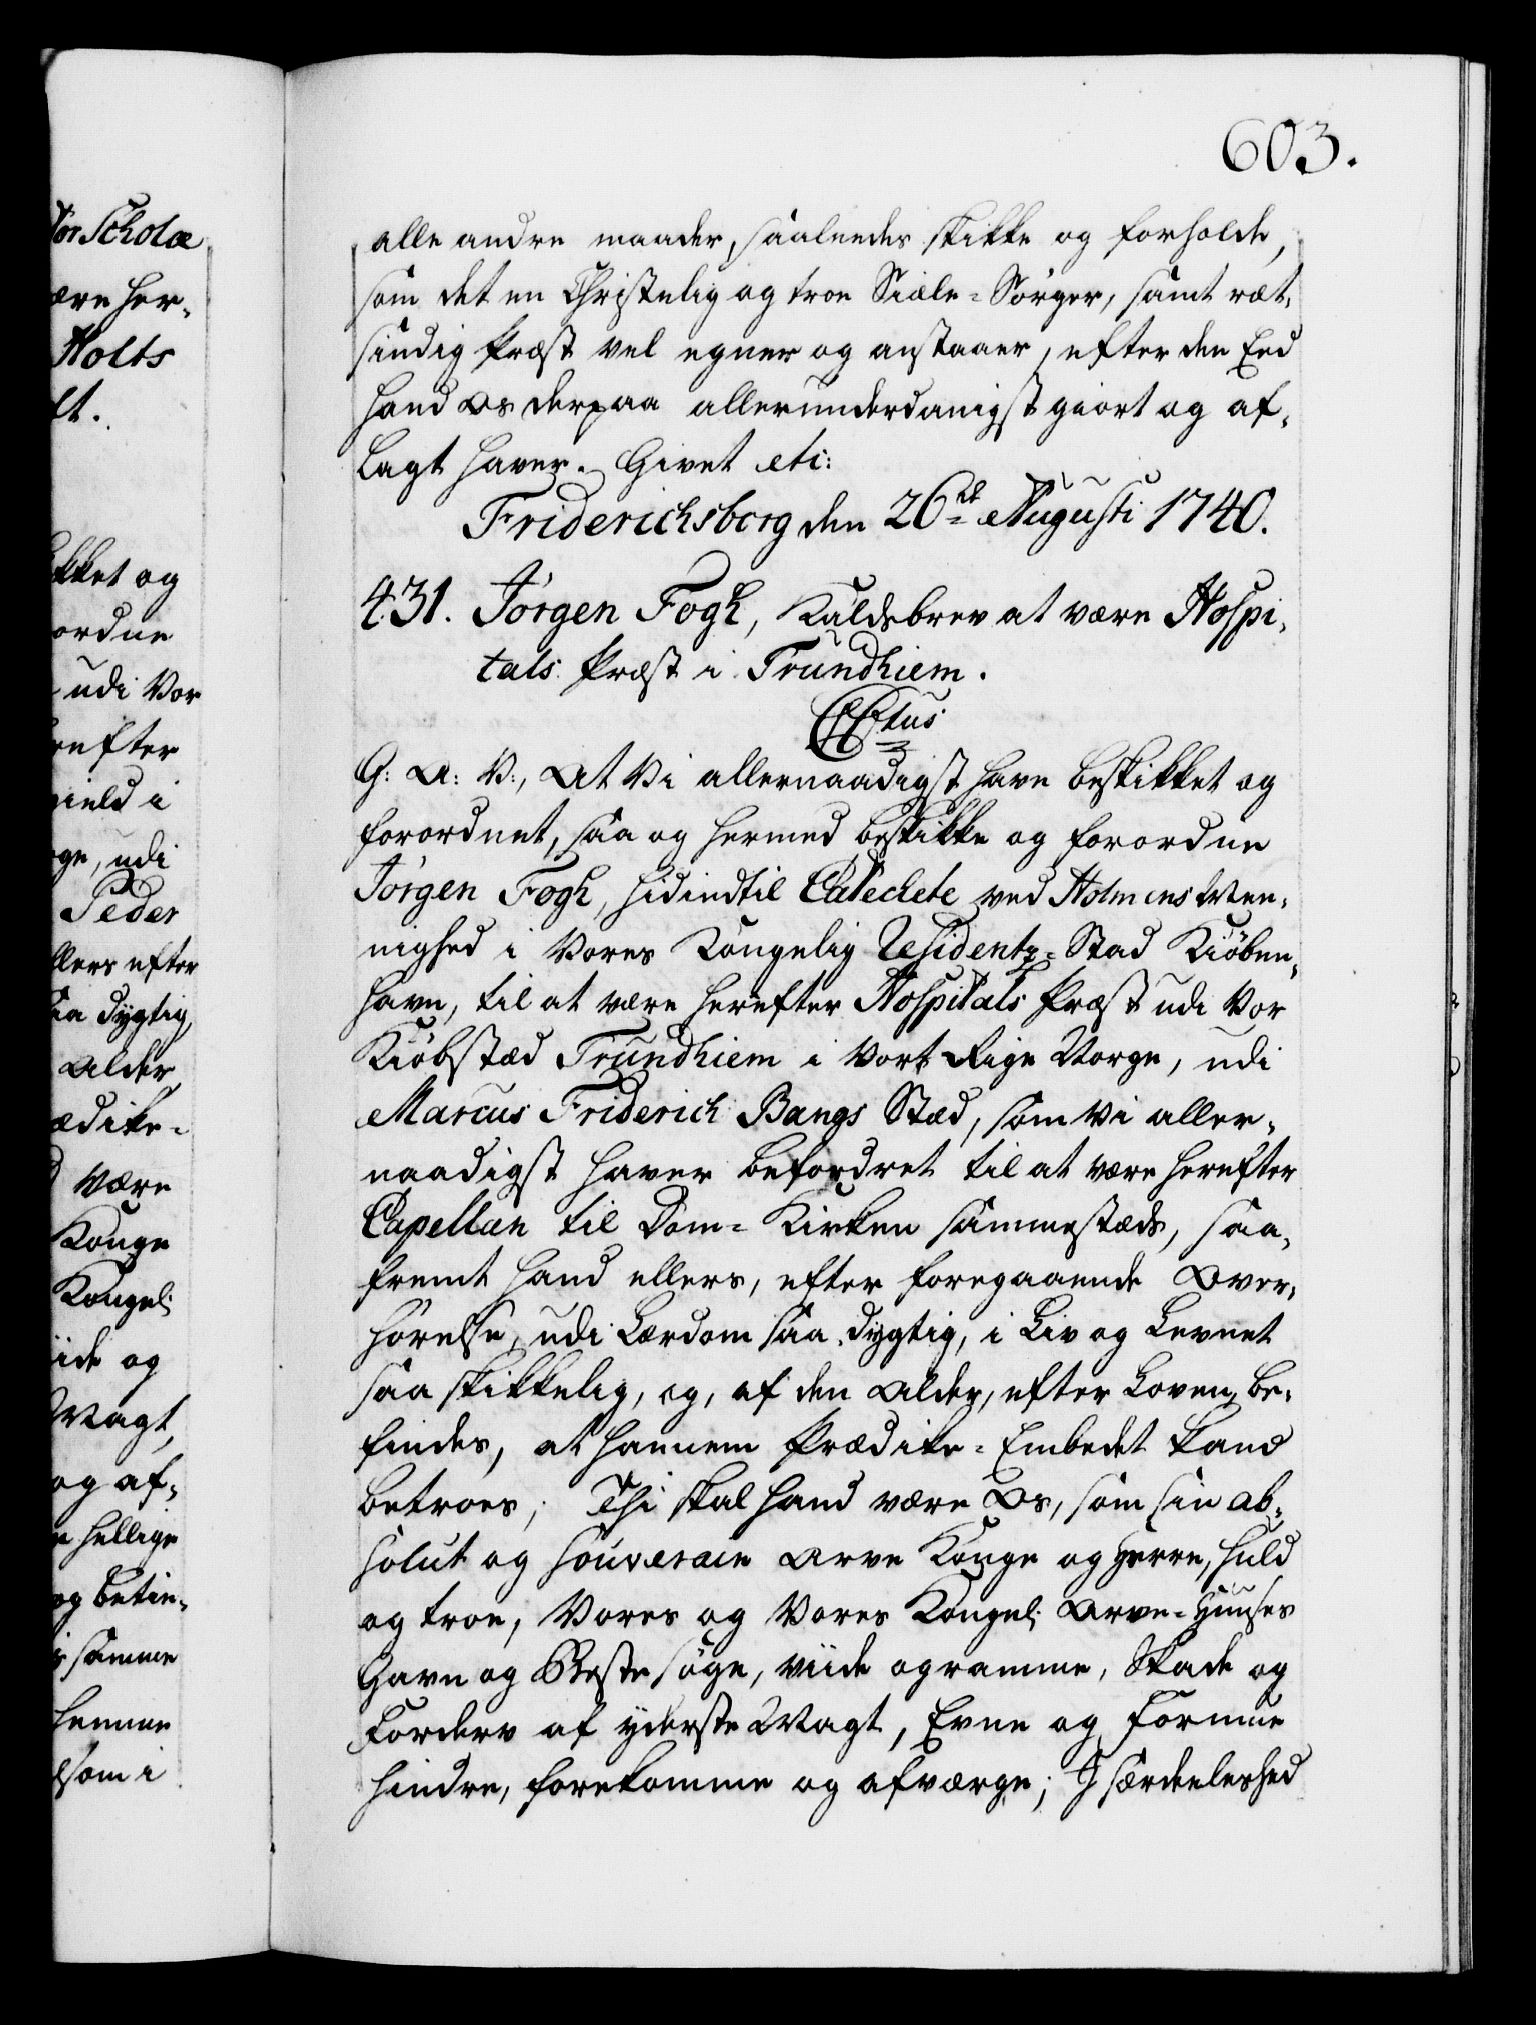 603.
alle andre maader, saaleedes skikke og forholde,
som det en Christelig og troe Siæle-Sörger, samt ræt-
sindig Præst vel egner og anstaaer, efter den Eed
hand Os derpaa allerunderdanigst giort og af-
lagt haver. Givet etc:
Friderichsborg den 26de Augusti 1740.
431. Jörgen Fogh, Kaldsbrev at være Hospi-
tals Præst i Trundhiem.
C6tus
G: A: V:, At Vi allernaadigst have beskikket og
forordnet, saa og hermed beskikke og forordne
Jörgen Fogh, hidindtil Catechete ved Holmens Me-
nighed i Vores Kongelig Residentz-Stad Kiöben-
havn, til at være herefter Hospitals Præst udi Vor
Kiöbstæd Trundhiem i Vort Rige Norge, udi
Marcus Friderich Bangs Stæd, som Vi aller-
naadigst haver befordret til at være herefter
Capellan til Dom-Kirken sammestæds, saa-
fremt hand ellers, efter foregaaende Over-
hörelse, udi Lærdom saa dygtig, i Liv og Levnet
saa skikkelig, og, af den Alder, efter Loven, be-
findes, at hannem Prædike-Embedet kand
betroes; Thi skal hand være Os, som sin ab-
solut og souverain Arve Konge og Herre, huld
og troe, Vores og Vores Kongel: Arve-Huuses
Gavn og Beste söge, viide og ramme, Skade og
Forderv af yderste Magt, Evne og Formue
hindre, forekomme og afværge; I særdeeleshed